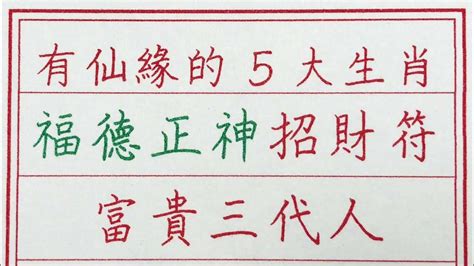 有仙緣的5大生肖
福德正神招財符
富貴三代人